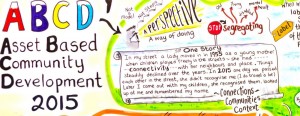 ABCD
Asset Based
Community
Development
2015
A PERSPECTIVE
A way of doing
STOP Segregating
One Story
In my street a lady moved in in 1955 as a young mother
when children played freely in the streets - she had
connectivity - with her neighbours and place. Things
steadily declined over the years. In 2015 one day as
and she didn't recognise me
Later I came out with my children, she recognised them, looked
up at me and remembered my name.
Connections -
Communities
Context